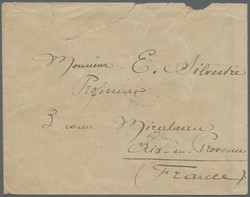 Monsieur E. Silvestre
Professeur
3 cours Mirabeau
Aix-en-Provence
(France)